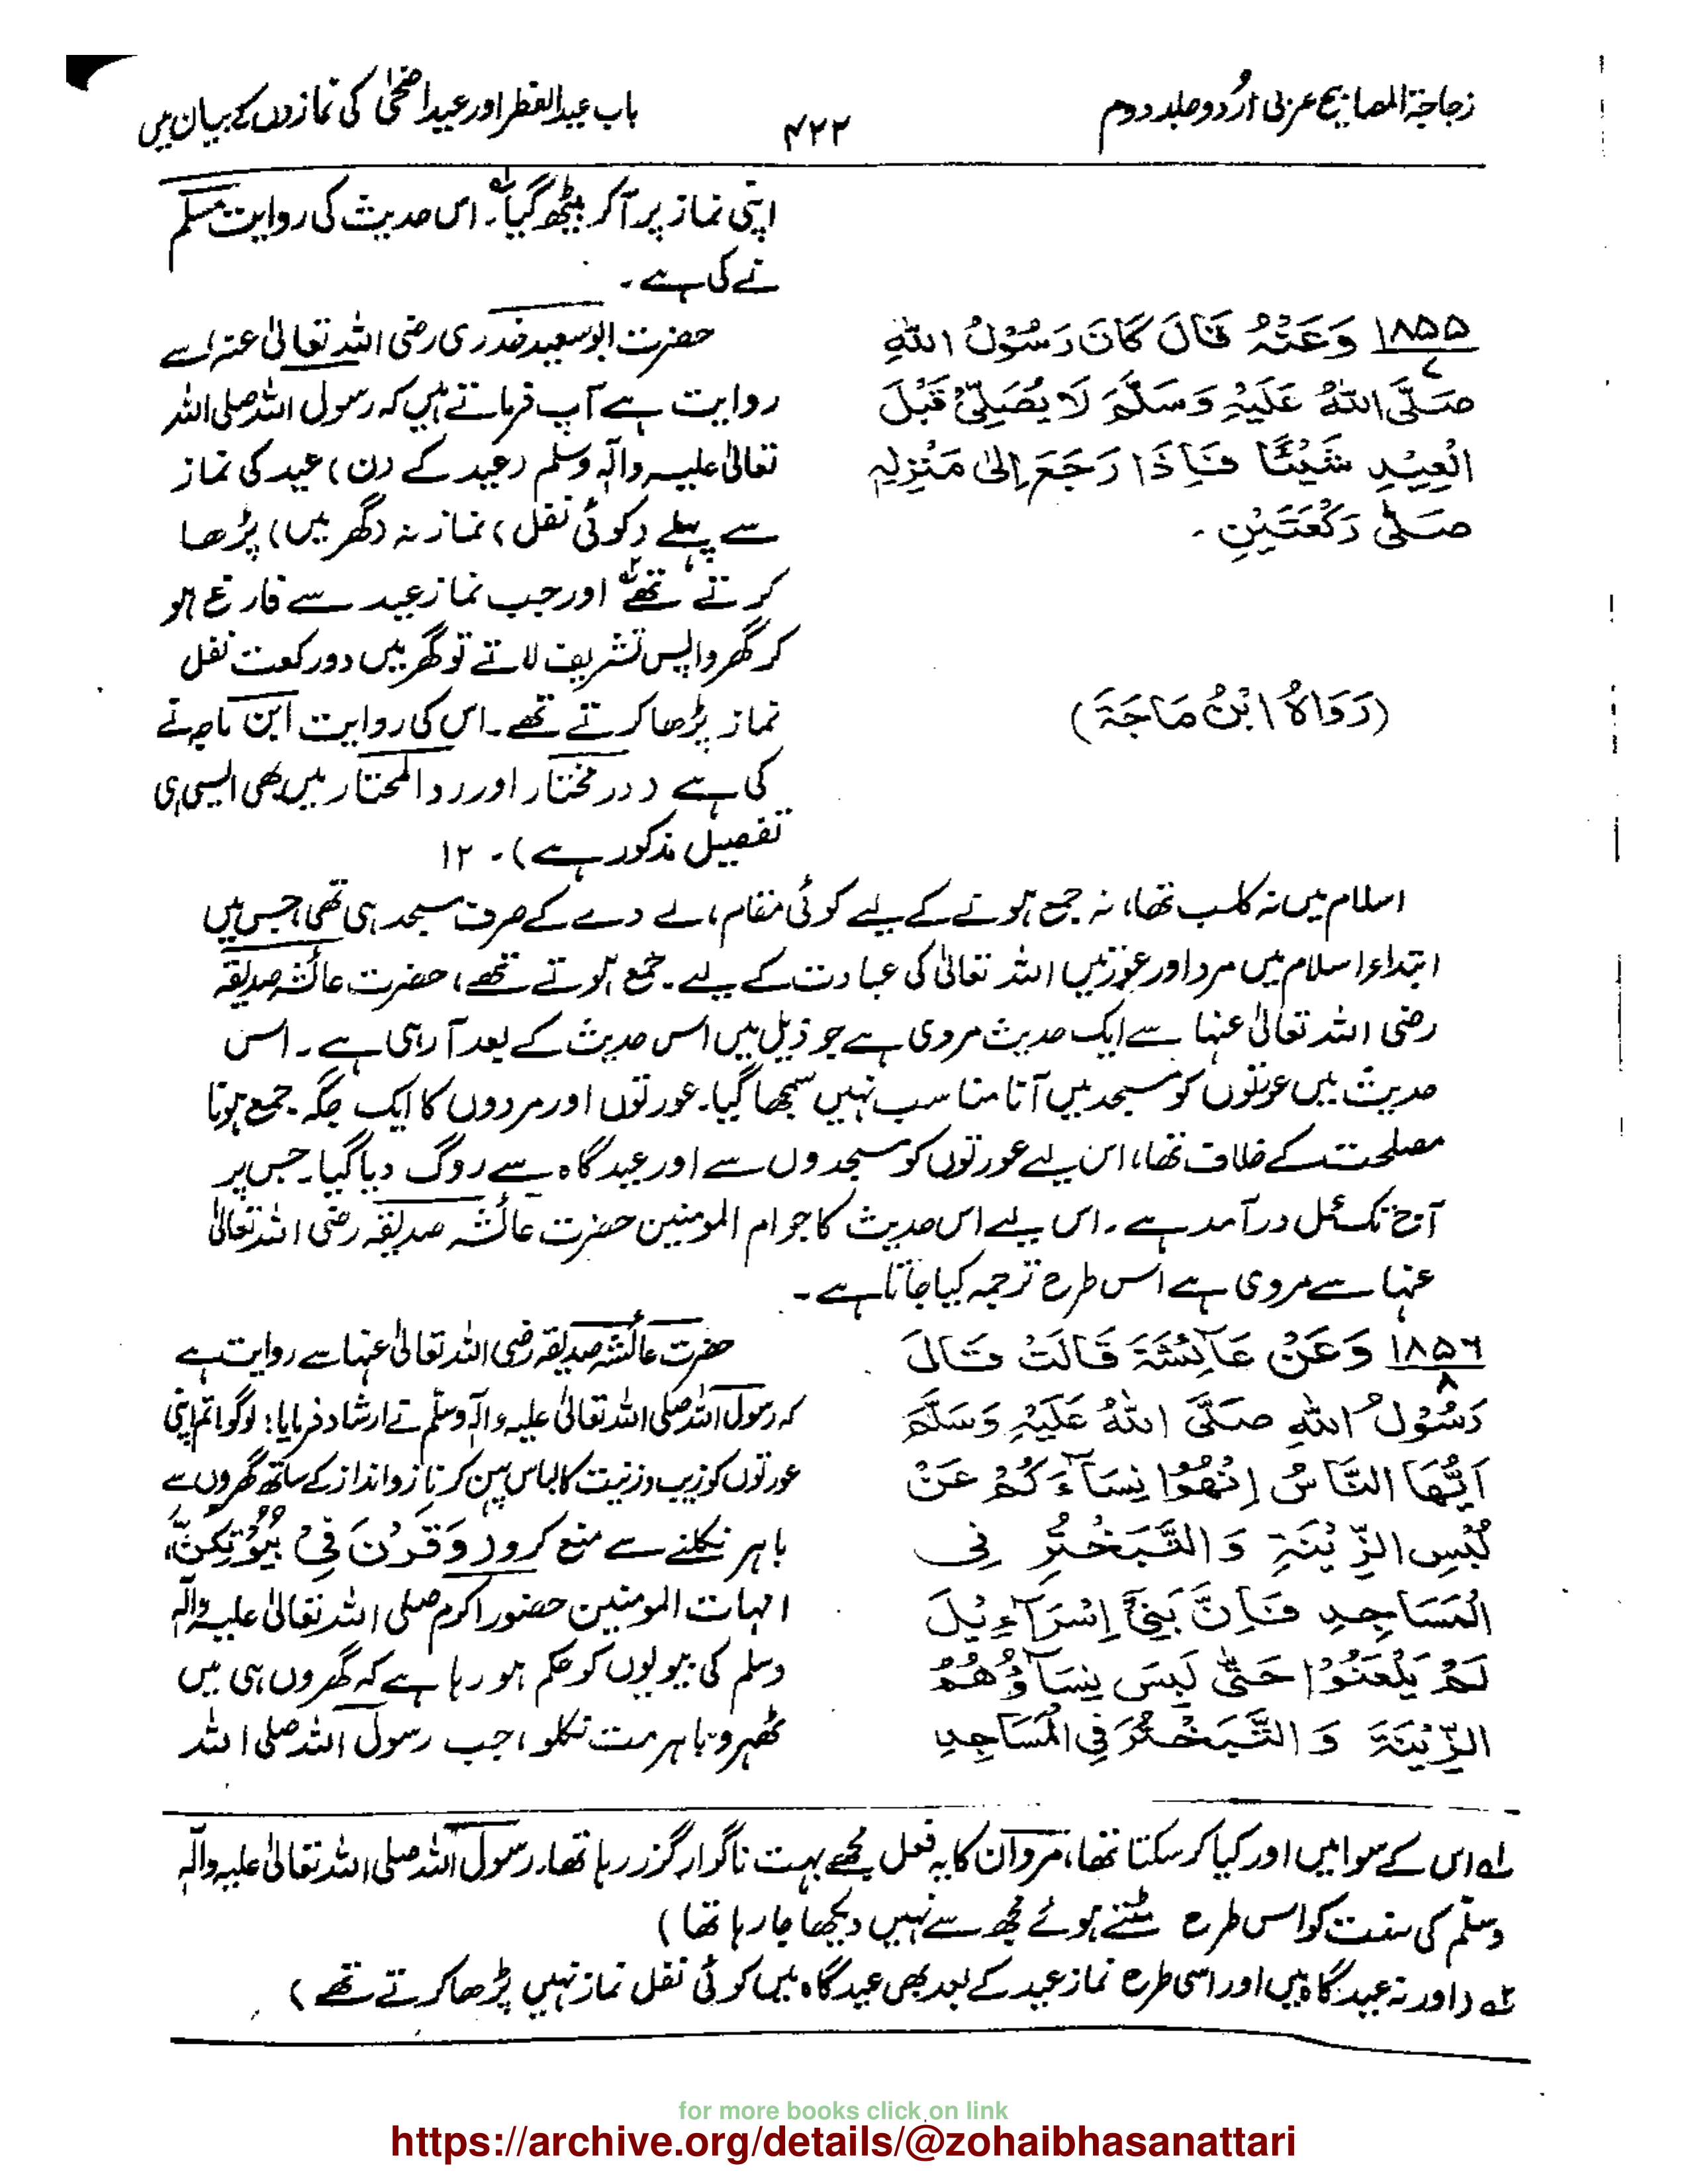 زجاجۃ المصابیح عربی اردو جلد دوم
۴۲۲
باب عید الفطر اور عید اضحیٰ کی نمازوں کے بیان میں
اپنی نماز پر آ کر بیٹھ گیا۔ لہ اس حدیث کی روایت مسلم
نے کی ہے۔
۱۸۵۵ وَعَنْہُ قَالَ کَانَ رَسُوْلُ اللّٰہِ
۷
صَلَّی اللّٰہُ عَلَیْہِ وَسَلَّمَ لَا یُصَلِّیْ قَبْلَ
الْعِیْدِ شَیْئًا فَاِذَا رَجَعَ اِلٰی مَنْزِلِہٖ
صَلّٰی رَکْعَتَیْنِ۔
(رَوَاہُ ابْنُ مَاجَۃَ)
حضرت ابو سعید خدری رضی اللہ تعالیٰ عنہ سے
روایت ہے آپ فرماتے ہیں کہ رسول اللہ صلی اللہ
تعالیٰ علیہ والہٖ وسلم (عید کے دن) عید کی نماز
سے پہلے (کوئی نفل) نماز نہ (گھر میں) پڑھا
کرتے تھے ۲ہ اور جب نماز عید سے فارغ ہو
کر گھر واپس تشریف لاتے تو گھر میں دو رکعت نفل
نماز پڑھا کرتے تھے۔ اس کی روایت ابن ماجہ نے
کی ہے (در مختار اور رد المحتار میں بھی ایسی ہی
تفصیل مذکور ہے)۔ ۱۲
اسلام میں نہ کلب تھا، نہ جمع ہونے کے لیے کوئی مقام، لے دے کے صرف مسجد ہی تھی، جس میں
ابتداء اسلام میں مرد اور عورتیں اللہ تعالیٰ کی عبادت کے لیے جمع ہوتے تھے، حضرت عائشہ صدیقہ
رضی اللہ تعالیٰ عنہا سے ایک حدیث مروی ہے جو ذیل میں اس حدیث کے بعد آ رہی ہے۔ اس
حدیث میں عورتوں کو مسجد میں آنا مناسب نہیں سمجھا گیا۔ عورتوں اور مردوں کا ایک جگہ جمع ہونا
مصلحت کے خلاف تھا، اس لیے عورتوں کو مسجدوں سے اور عید گاہ سے روگ دیا گیا۔ جس پر
آج تک عمل درآمد ہے۔ اس لیے اس حدیث کا جو ام المومنین حضرت عائشہ صدیقہ رضی اللہ تعالیٰ
عنہا سے مروی ہے اس طرح ترجمہ کیا جاتا ہے۔
۱۸۵۶ وَعَنْ عَآئِشَۃَ قَالَتْ قَالَ
۸
رَسُوْلُ اللّٰہِ صَلَّی اللّٰہُ عَلَیْہِ وَسَلَّمَ
اَیُّھَا النَّاسُ اِنْھَوْا نِسَآءَکُمْ عَنْ
لُبْسِ الزِّیْنَۃِ وَالتَّبَخْتُرِ فِی
الْمَسَاجِدِ فَاِنَّ بَنِیْٓ اِسْرَآءِیْلَ
لَمْ یَلْعَنُوْا حَتّٰی لَبِسَ نِسَآؤُھُمُ
الزِّیْنَۃَ وَالتَّبَخْتُرَ فِی الْمَسَاجِدِ
حضرت عائشہ صدیقہ رضی اللہ تعالیٰ عنہا سے روایت ہے
کہ رسول اللہ صلی اللہ تعالیٰ علیہ والہٖ وسلم نے ارشاد فرمایا: لوگو! تم اپنی
عورتوں کو زیب و زینت کا لباس پہن کر ناز و انداز کے ساتھ گھروں سے
باہر نکلنے سے منع کرو (وَقَرْنَ فِیْ بُیُوْتِکُنَّ،
امہات المومنین حضور اکرم صلی اللہ تعالیٰ علیہ والہٖ
وسلم کی بیویوں کو حکم ہو رہا ہے کہ گھروں ہی میں
ٹھہرو باہر مت نکلو، جب رسول اللہ صلی اللہ
لہ اس کے سوا میں اور کیا کر سکتا تھا، مروان کا یہ فعل مجھے بہت ناگوار گزر رہا تھا۔ رسول اللہ صلی اللہ تعالیٰ علیہ والہٖ
وسلم کی سنت کو اس طرح مٹتے ہوئے مجھ سے نہیں دیکھا جا رہا تھا)
۲ہ (اور نہ عید گاہ میں اور اسی طرح نماز عید کے بعد بھی عید گاہ میں کوئی نفل نماز نہیں پڑھا کرتے تھے)
for more books click on link
https://archive.org/details/@zohaibhasanattari